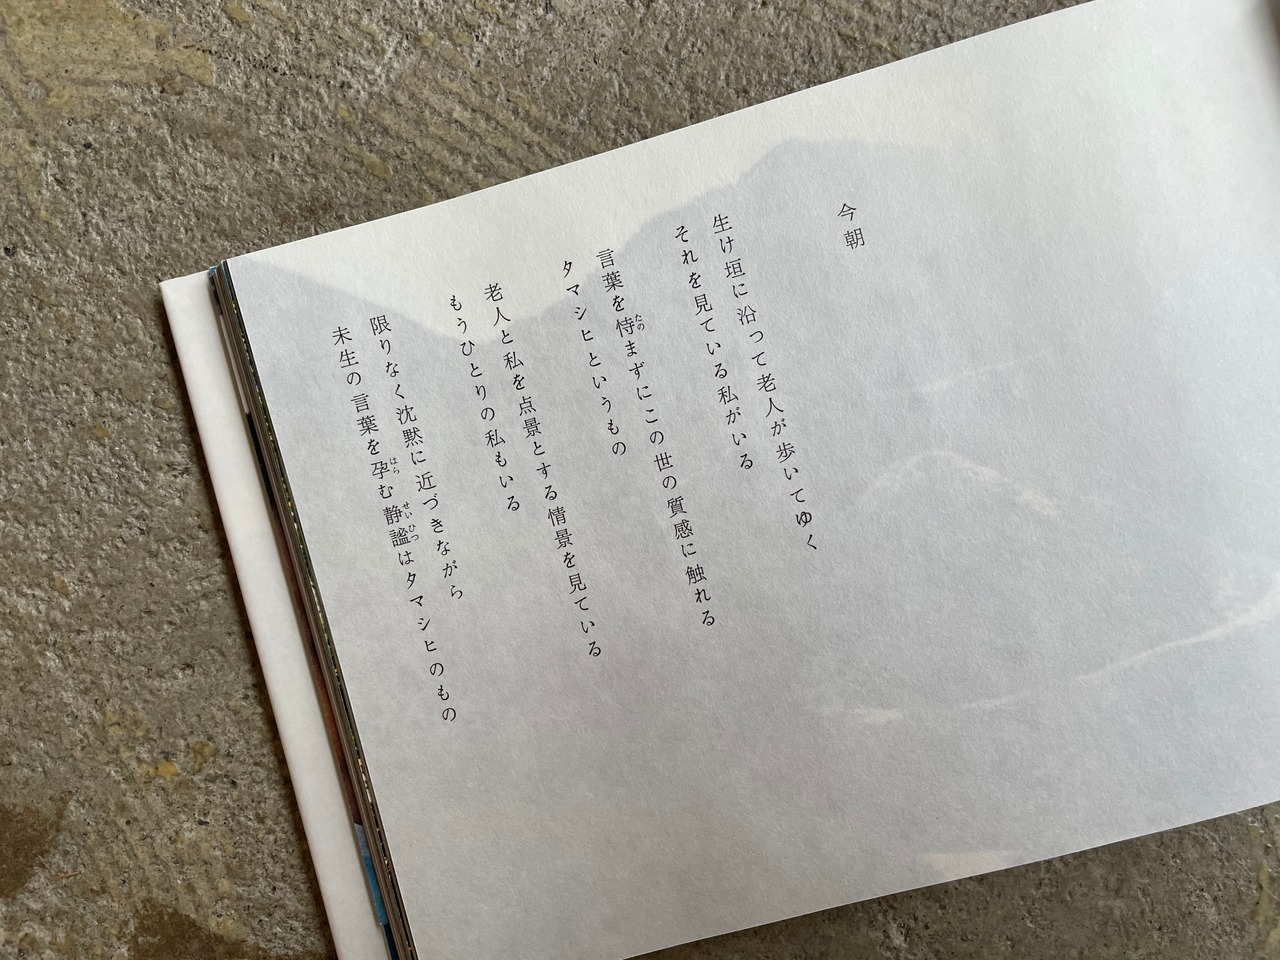 今朝
生け垣に沿って老人が歩いてゆく
それを見ている私がいる
言葉を恃まずにこの世の質感に触れる
タマシヒというもの
老人と私を点景とする情景を見ている
もうひとりの私もいる
限りなく沈黙に近づきながら
未生の言葉を孕む静謐はタマシヒのもの